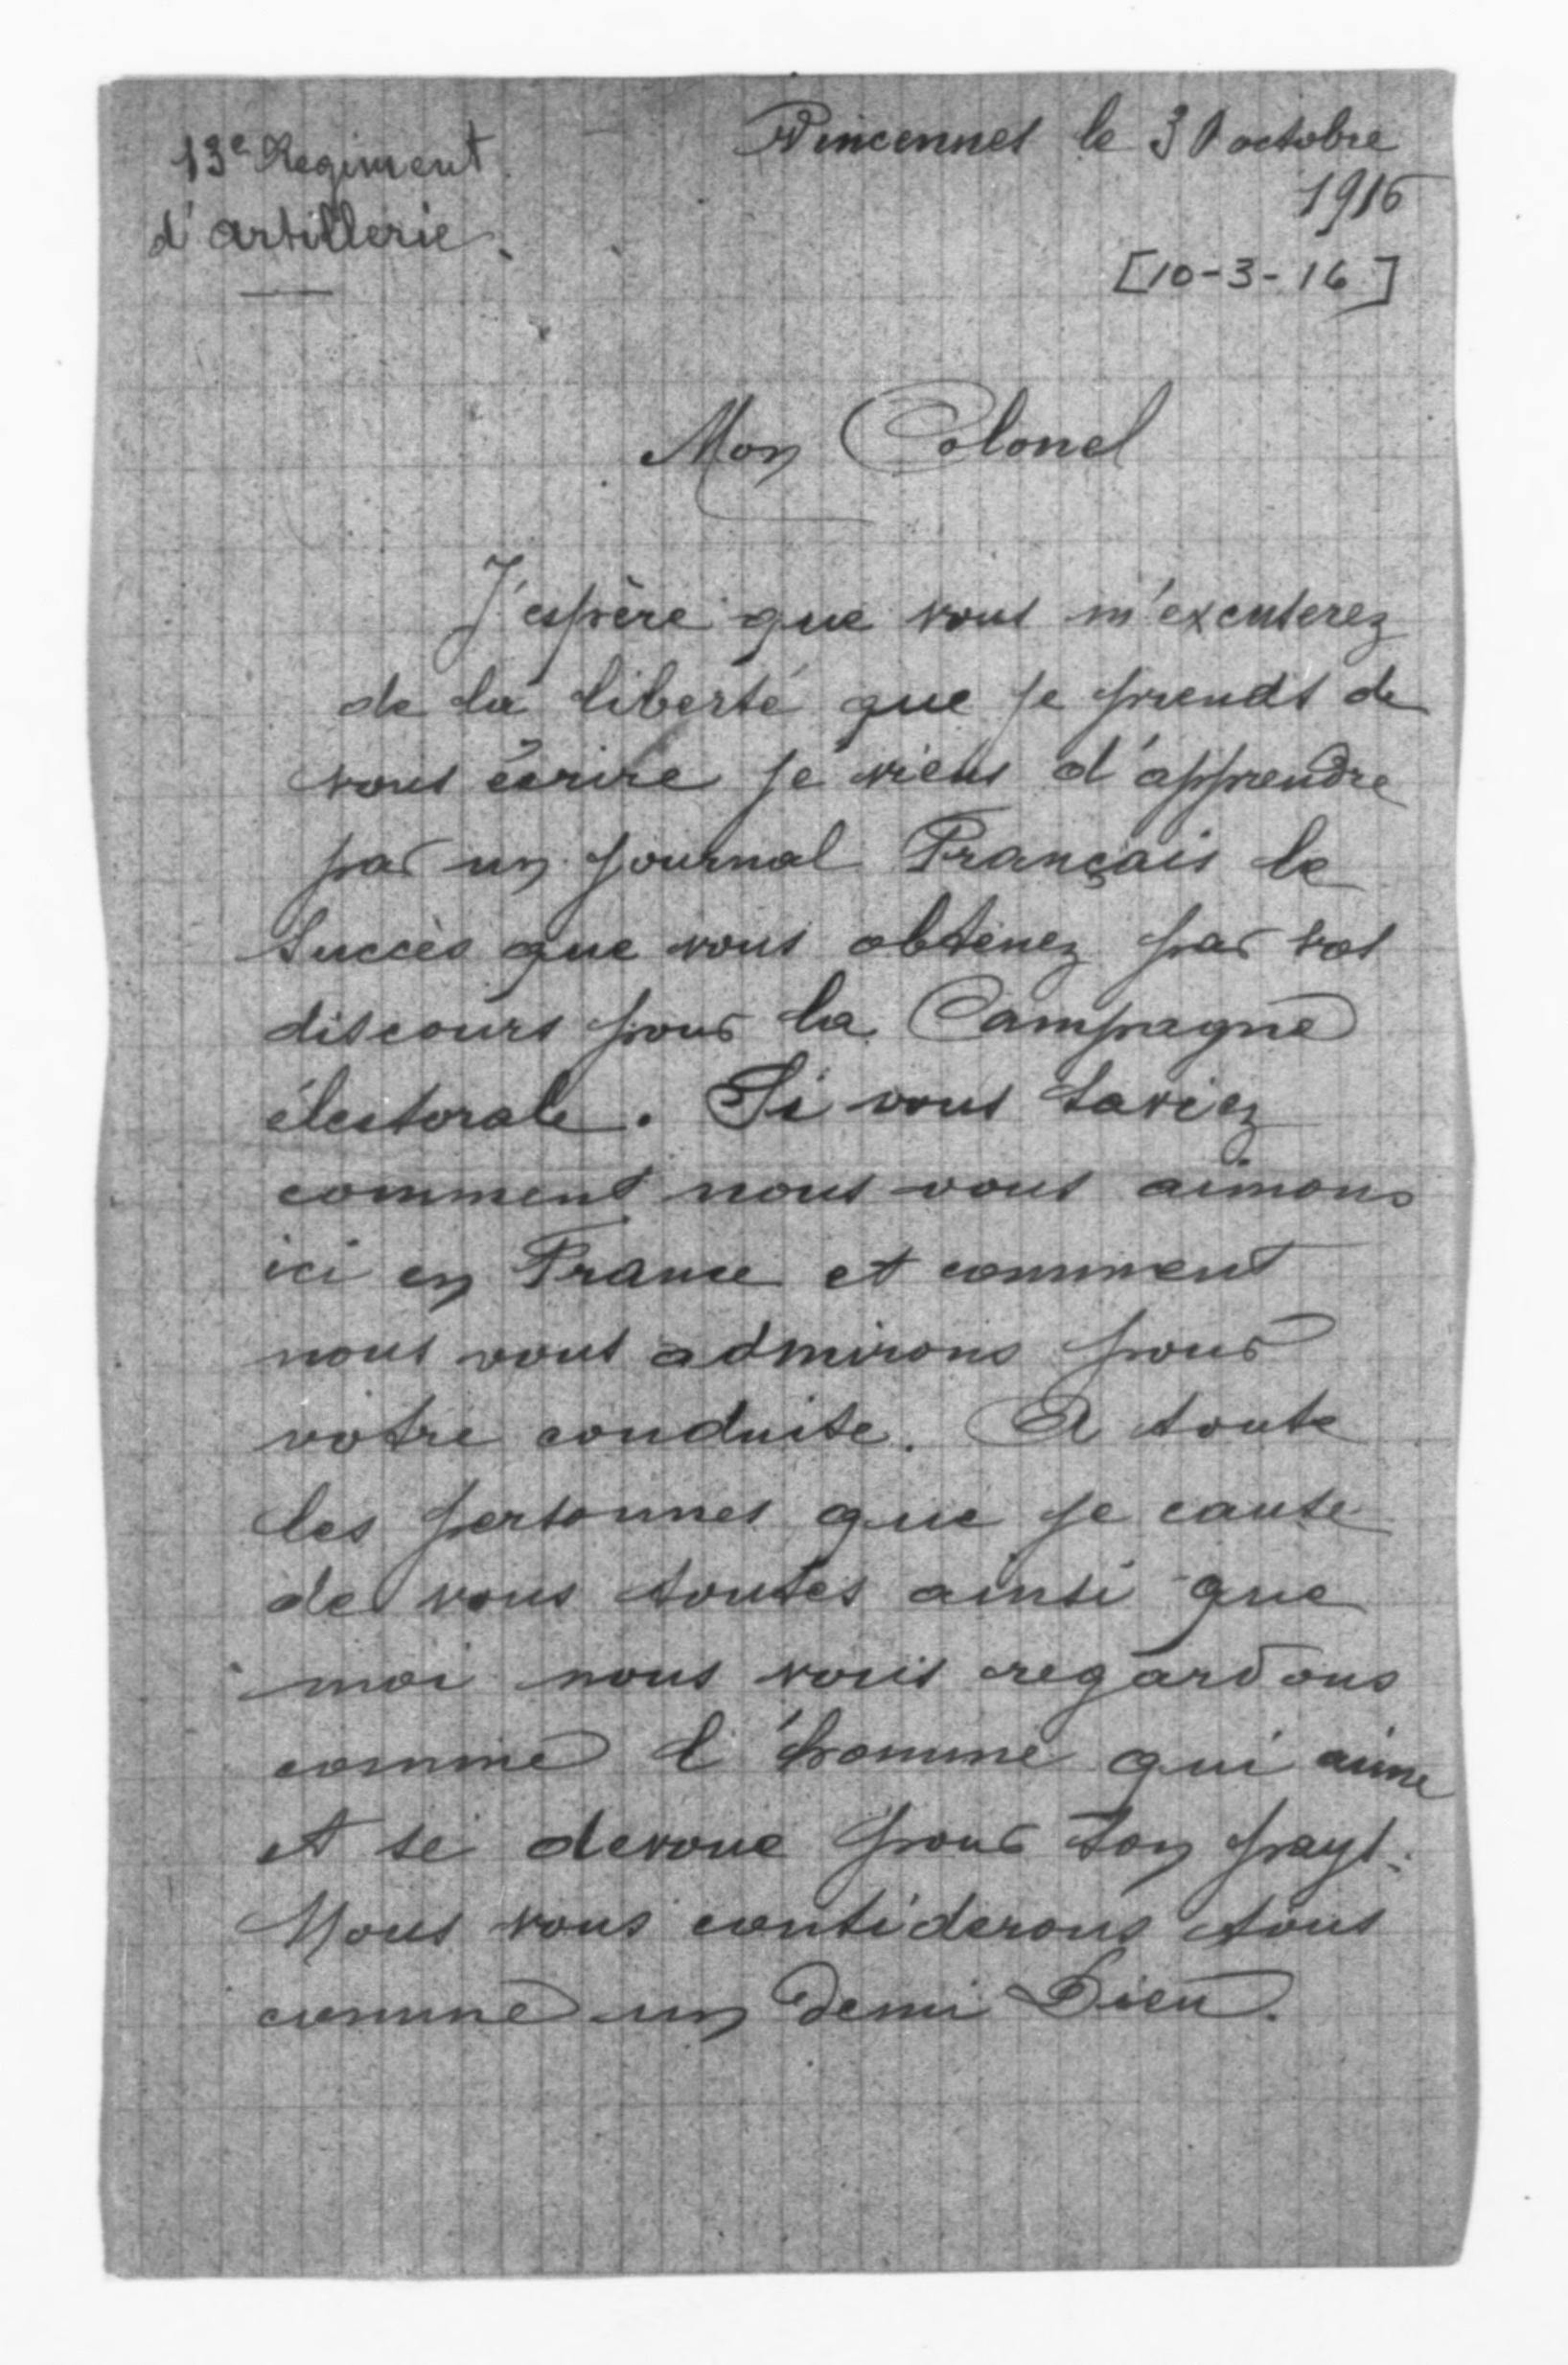 13e Regiment
d'artillerie.
Vincennes le 31 octobre
1916
[10-3-16]
Mon Colonel
J'espère que vous m'excuserez
de la liberté que je prends de
vous écrire je viens d'apprendre
par un journal Français le
succès que vous obtenez par vos
discours pour la Campagne
électorale. Si vous saviez
comment nous vous aimons
ici en France et comment
nous vous admirons pour
votre conduite. A toute
les personnes que je cause
de vous toutes ainsi que
moi nous vous regardons
comme l'homme qui aime
et se devoue pour son pays.
Nous vous considerons tous
comme un demi Dieu.